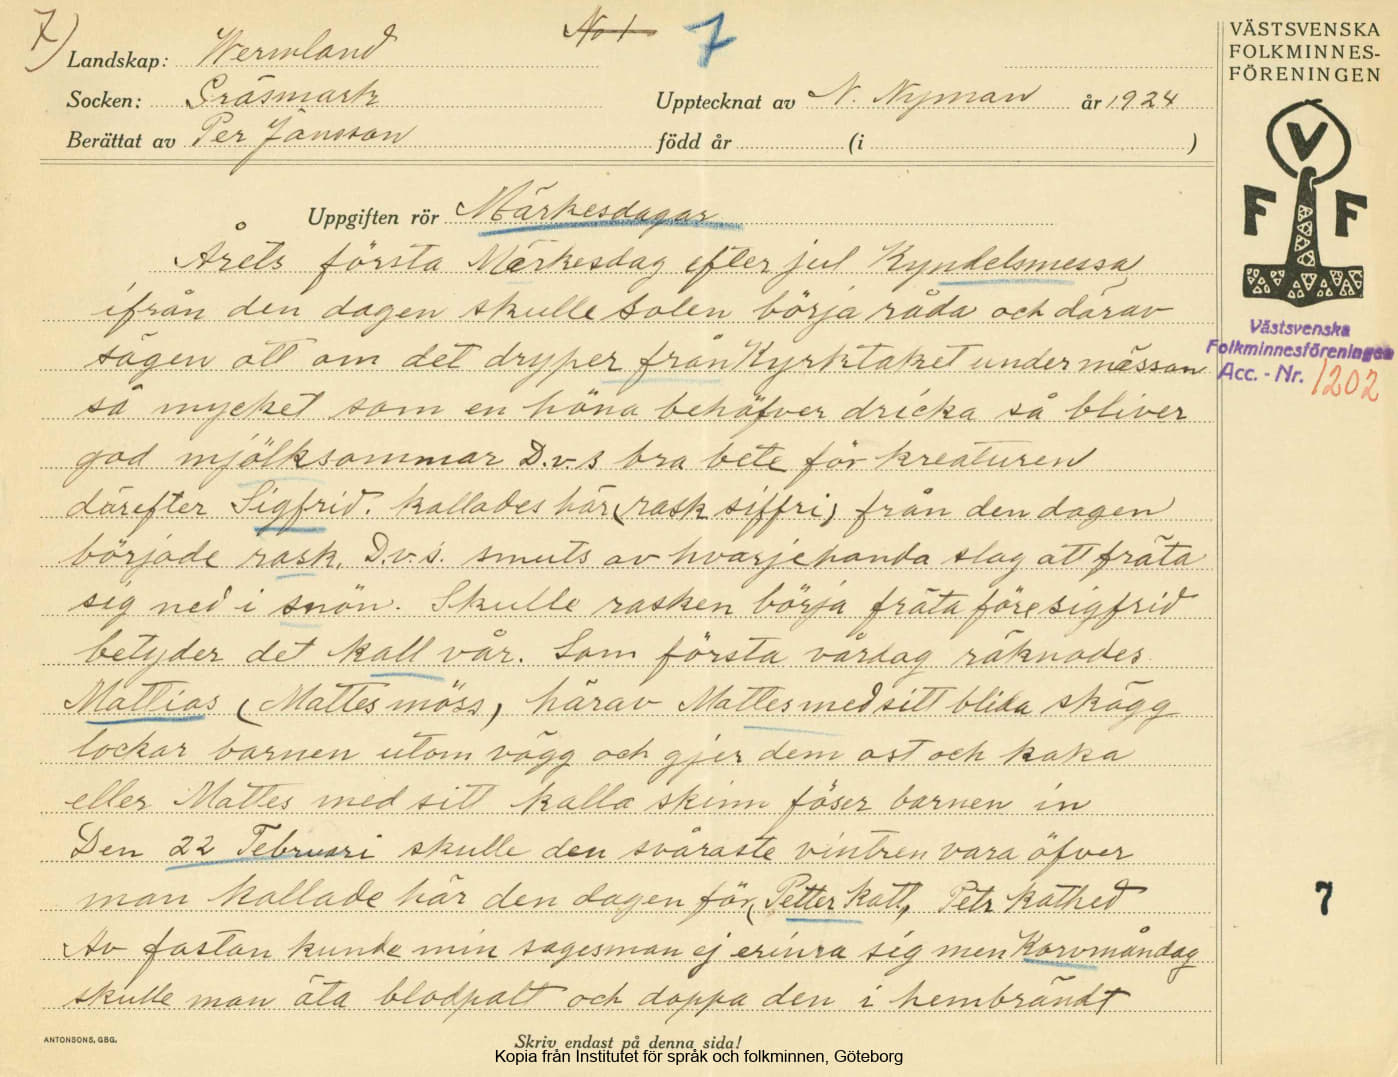 7)
No 1
7
Landskap: Wermland
Socken: Gräsmark
Upptecknat av N. Nyman år 1924
Berättat av Per Jönsson
född år (i )
VÄSTSVENSKA
FOLKMINNES-
FÖRENINGEN
V
F F
Västsvenska
Folkminnesföreningen
Acc. - Nr. 1202
Uppgiften rör Märkesdagar
Årets första Märkesdag efter jul Kyndelsmessa
ifrån den dagen skulle solen börja råda och därav
sägen att om det dryper från Kyrktaket under mässan
så mycket som en höna behöfver dricka så bliver
god mjölksommar D.v.s bra bete för kreaturen
därefter Sigfrid. kallades här (rask siffri) från den dagen
började rask. D.v.s. smuts av hvarjehanda slag att fräta
sig ned i snön. Skulle rasken börja fräta före sigfrid
betyder det kall vår. Som första vårdag räknades
Mattias (Mattesmöss) härav Mattes med sitt blida skägg
lockar barnen utom vägg och gjer dem ost och kaka
eller Mattes med sitt kalla skinn föser barnen in
Den 22 Februari skulle den svåraste vintren vara öfver
man kallade här den dagen för (Petter Katt, Petr Kathed
Av fastan kunde min sagesman ej erinra sig men Korvmåndag
skulle man äta blodpalt och doppa den i hembrändt
7
ANTONSONS, GBG.
Skriv endast på denna sida!
Kopia från Institutet för språk och folkminnen, Göteborg